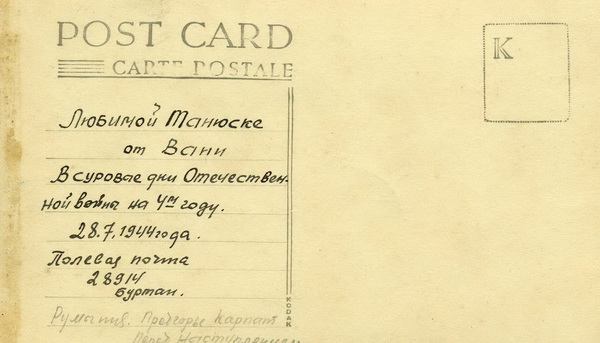 POST CARD
CARTE POSTALE
K
Любимой Танюске
от Вани
В суровые дни Отечествен-
ной войны на 4ᵐ году.
28.7.1944 года.
Полевая почта
28914
Буртан.
KODAK
Румыния. Предгорье Карпат
Перед Наступлением